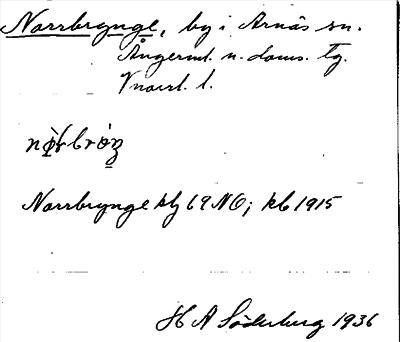 Norrbrynge, by i Arnäs sn.
Ångerml. n. doms. Tg.
Vnorrl. l.
Norrbrynge klj 69NO; kb 1915
H A Söderberg 1936